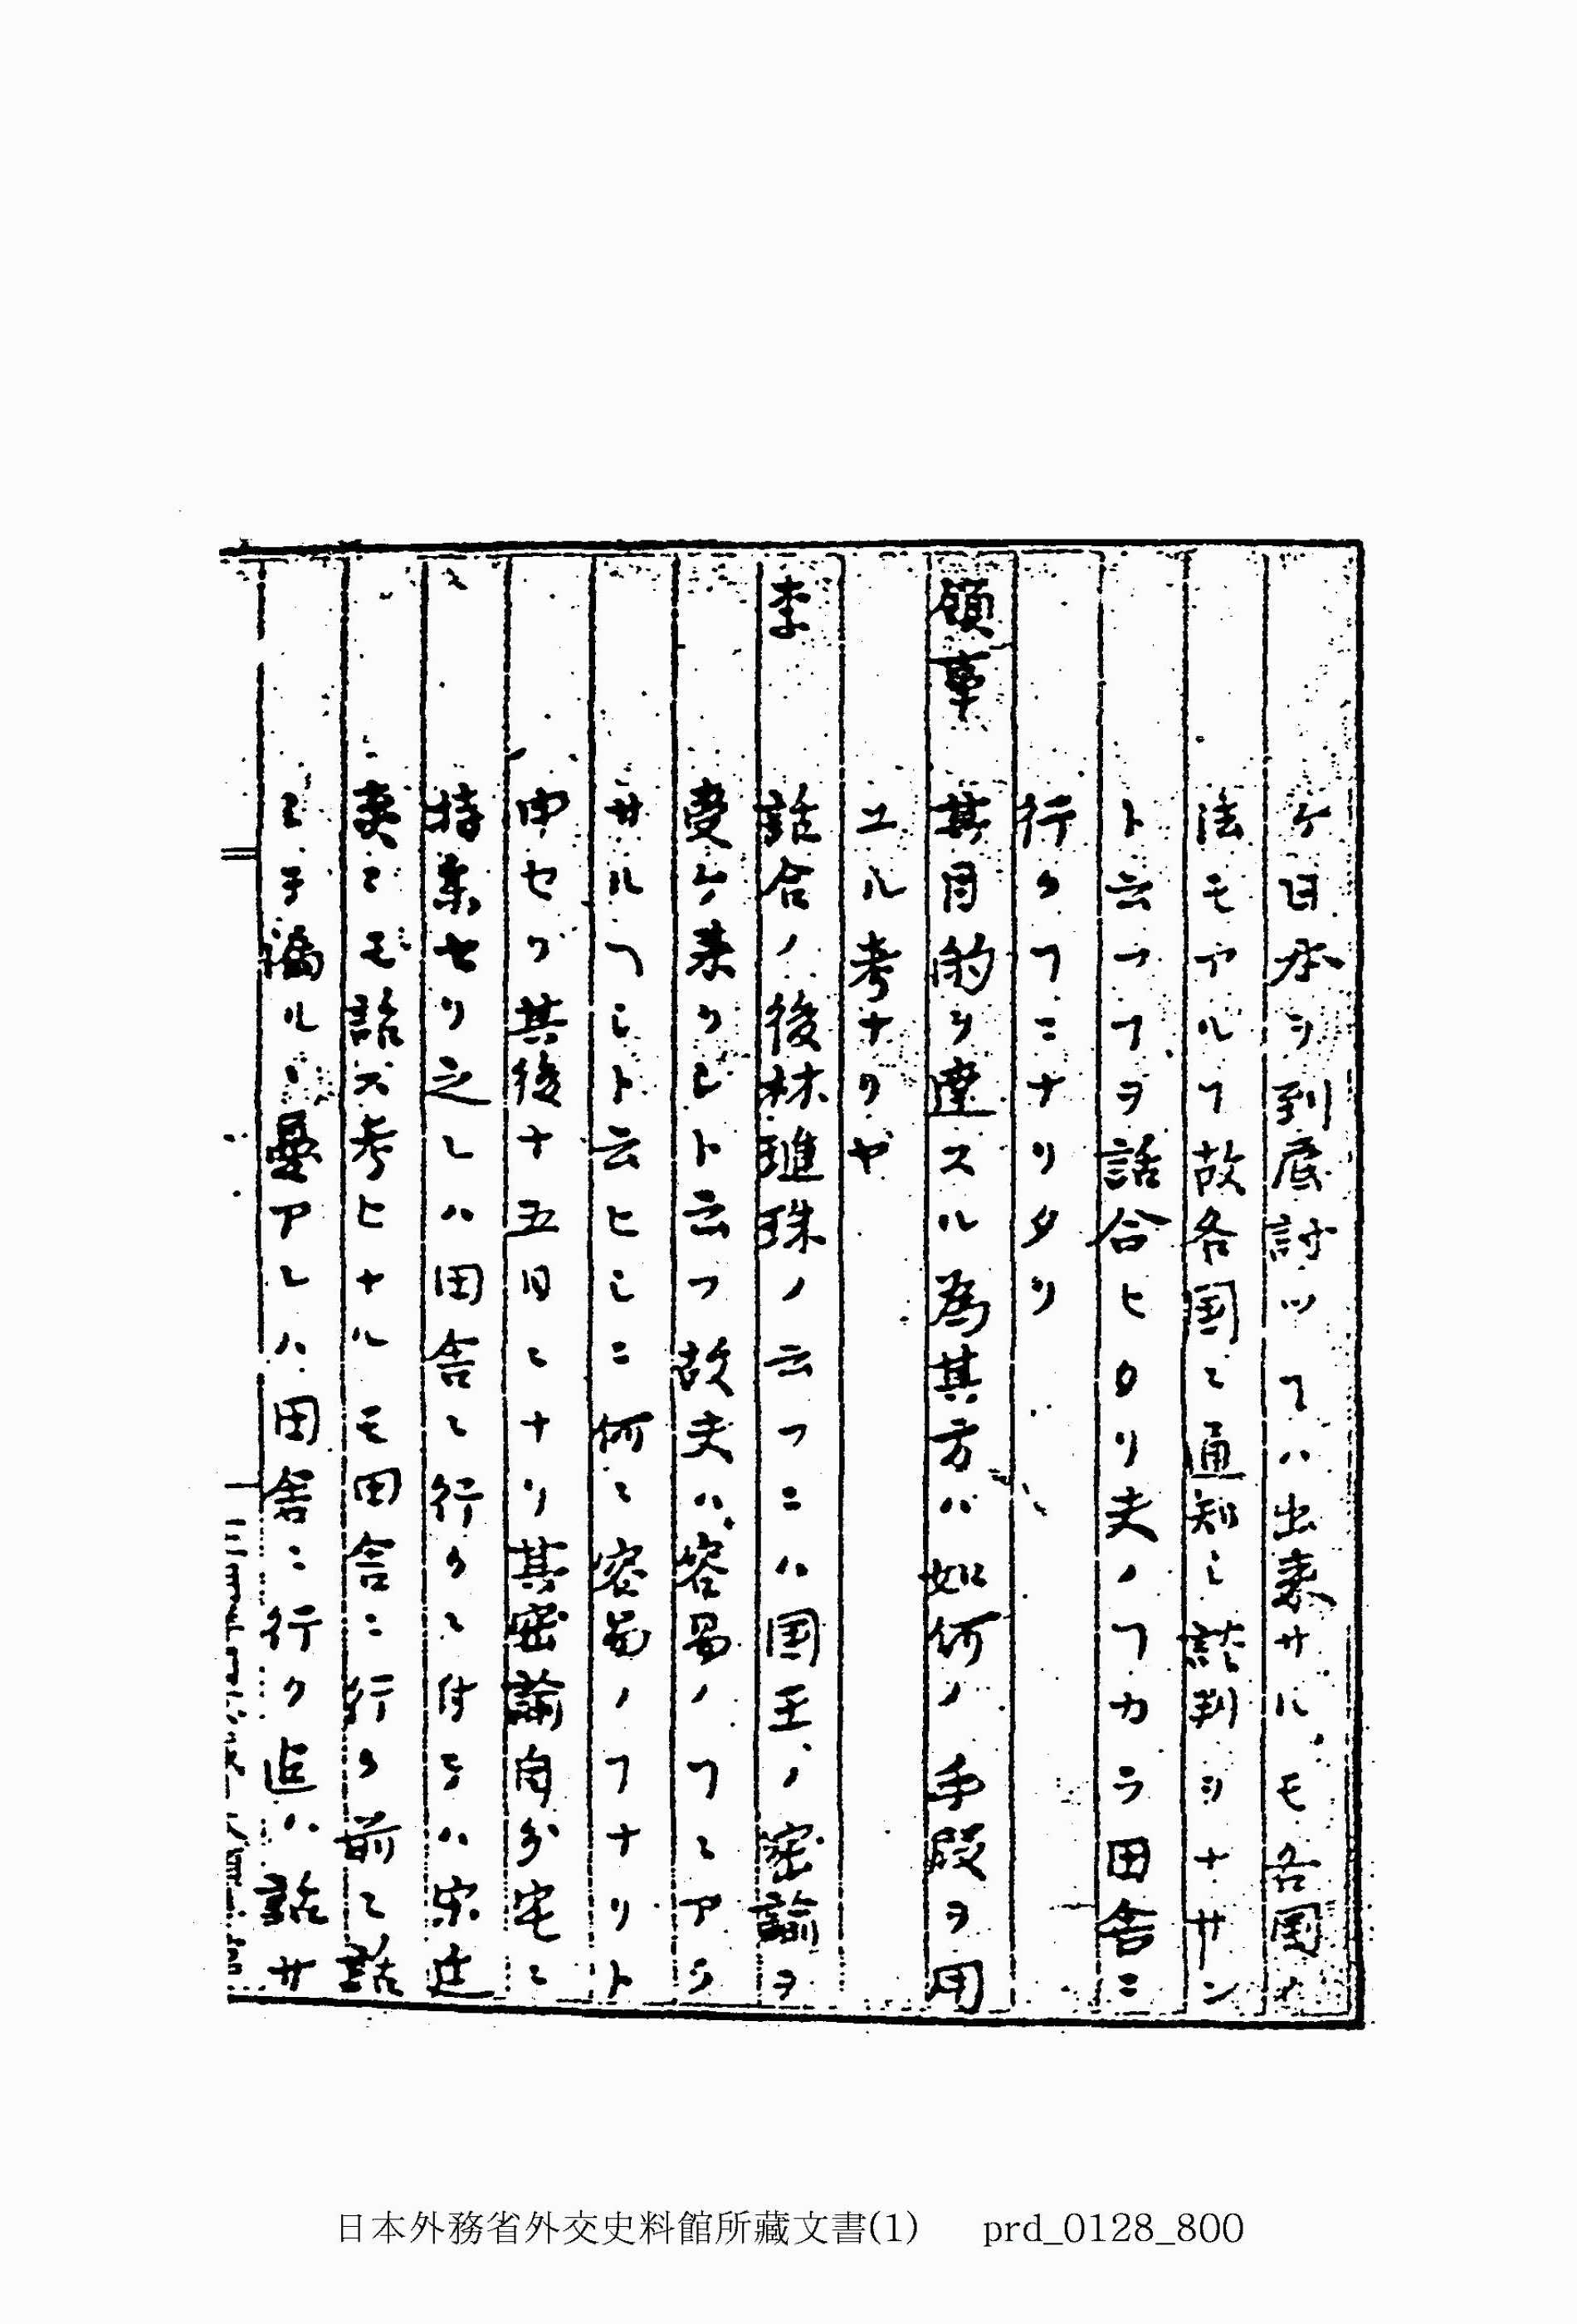 ケ日本ヲ到底討ツヿハ出来サルモ各国ノ
法モアルヿ故各国ニ通知シ談判ヲナサン
ト云フヿヲ話合ヒタリ夫ノヿカラ田舎ニ
行クヿニナリタリ
領事 其目的ヲ達スル為其方ハ如何ノ手段ヲ用
ユル考ナリヤ
李 話合ノ後林璡珠ノ云フニハ国王ノ密諭ヲ
受ケ来リシト云フ故夫ハ容易ノヿニアラ
サルヿシト云ヒシニ何ニ容易ノヿナリト
申セリ其後十五日ニナリ其密諭自分宅ニ
持来セリ之レハ田舎ニ行クニ付テハ宋廷
奏ニモ話ス考ヒナルモ田舎ニ行ク前ニ話
シテ禍ル、憂アレハ田舎ニ行ク迄ハ話サ
日本外務省外交史料館所藏文書(1) prd_0128_800